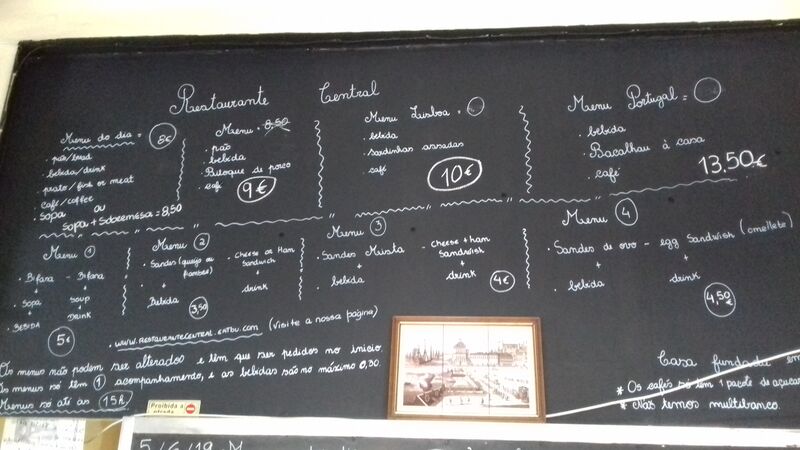 Restaurante Central
Menu do dia = 8€
. pão/bread
. bebida/drink
. prato/fish or meat
. café/coffee
. sopa ou
sopa + sobremesa = 8,50
Menu = 8,50
. pão
. bebida
. Bitoque de porco
. café 9€
Menu Lisboa =
. bebida
. sardinhas assadas
. café
10€
Menu Portugal =
. bebida
. Bacalhau à casa
. café
13.50€
Menu 1
. Bifana - Bifana
+ +
. Sopa soup
+ +
. BEBIDA DRINK
5€
Menu 2
. Sandes (queijo ou fiambre)
+
. Bebida
. Cheese or Ham Sandwich
+
drink
3,50
Menu 3
. Sandes Mista - Cheese + ham Sandwich
+ +
. bebida drink
4€
Menu 4
. Sandes de ovo - egg Sandwich (omellete)
+ +
. bebida drink
4,50€
. www.RESTAURANTECENTRAL.eatbu.com (visite a nossa página)
Os menus não podem ser alterados e têm que ser pedidos no início.
Os menus só têm 1 acompanhamento, e as bebidas são no máximo 0,30.
Menus só até as 15h.
Casa fundada em
* Os cafés só têm 1 pacote de açucar
* Não temos multibanco.
Proibida a entrada
5/6/19